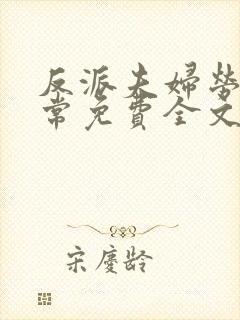 反派夫婦勞
常免費全文
宋慶齡